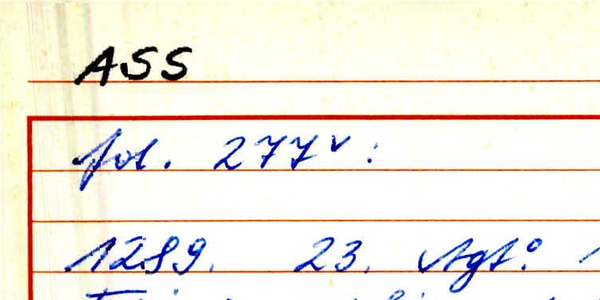 ASS
fol. 277v:
1289. 23. Agto